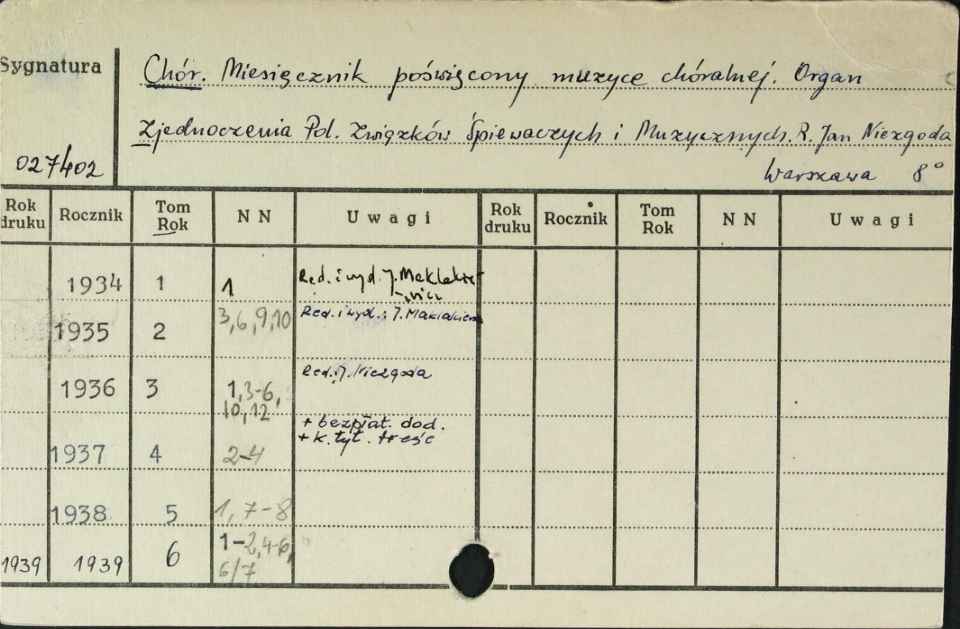 Sygnatura
027402
Chór. Miesięcznik poświęcony muzyce chóralnej. Organ
Zjednoczenia Pol. Związków Śpiewaczych i Muzycznych. R. Jan Niezgoda
Warszawa 8°
Rok druku Rocznik Tom Rok NN Uwagi Rok druku Rocznik Tom Rok NN Uwagi
1934 1 1 Red. i wyd. J. Maklakie-
-wicz
1935 2 3,6,9,10 Red. i wyd.: J. Maklakiewicz
1936 3 1,3-6, Red. J. Niezgoda
10,12
+ bezpłat. dod.
+ k. tyt. treść
1937 4 2-4
1938 5 1,7-8
1939 1939 6 1-2,4-6,
6/7